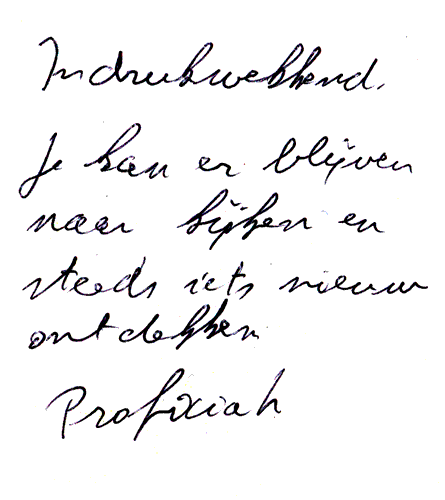 Indrukwekkend.
Je kan er blijven
naar kijken en
steeds iets nieuw
ontdekken
Proficiat